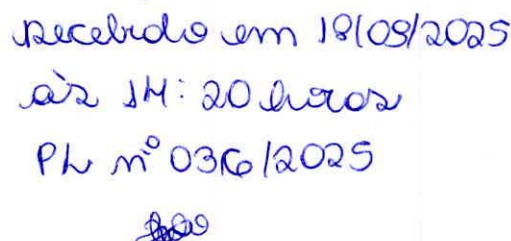 Recebido em 18/09/2025
às 14:20 horas
PL nº 036/2025